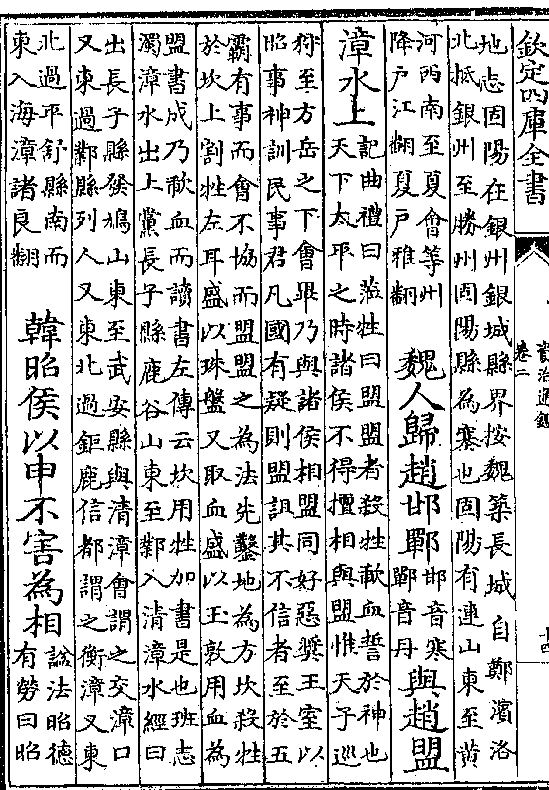 欽定四庫全書
資治通鑑
卷二
十四
地志固陽在銀州銀城縣界按魏築長城自鄭濱洛
北抵銀州至勝州固陽縣為塞也固陽有連山東至黄
河西南至夏會等州
降户江翻夏户雅翻
魏人歸趙邯鄲
邯音寒
鄲音丹
與趙盟
漳水上
記曲禮曰涖牲曰盟盟者殺牲歃血誓於神也
天下太平之時諸侯不得擅相與盟惟天子巡
狩至方岳之下會畢乃與諸侯相盟同好惡奬王室以
昭事神訓民事君凡國有疑則盟詛其不信者至於五
霸有事而會不協而盟盟之為法先鑿地為方坎殺牲
於坎上割牲左耳盛以珠盤又取血盛以玉敦用血為
盟書成乃歃血而讀書左傳云坎用牲加書是也班志
濁漳水出上黨長子縣鹿谷山東至鄴入清漳水經曰
出長子縣發鳩山東至武安縣與清漳會謂之交漳口
又東過鄴縣列人又東北過鉅鹿信都謂之衡漳又東
北過平舒縣南而
東入海漳諸良翻
韓昭侯以申不害為相
諡法昭德
有勞曰昭